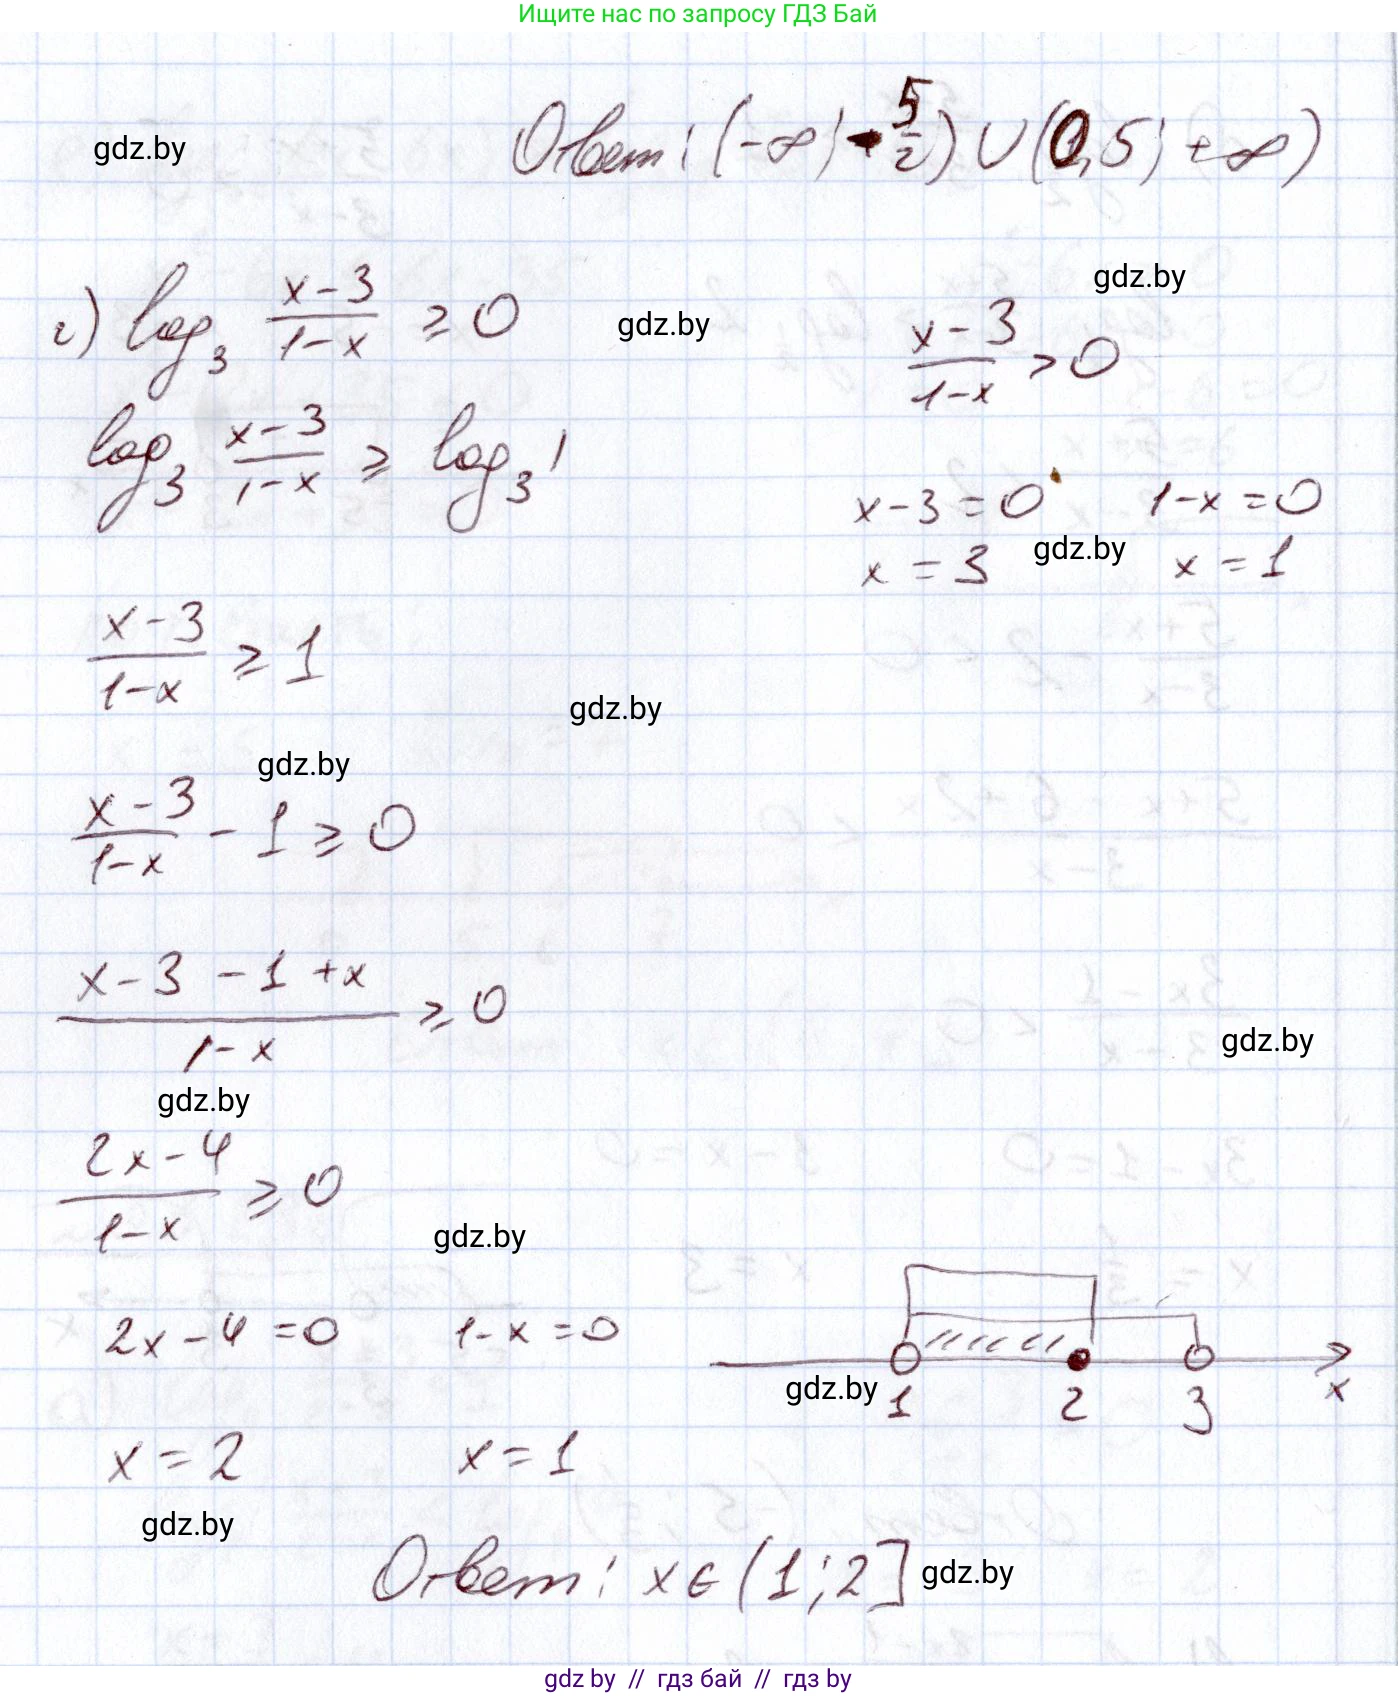 Ищите нас по запросу ГДЗ Бай
Ответ: (-∞; -5/2) ∪ (0,5; +∞)
gdz.by
gdz.by
г) log₃ (x-3)/(1-x) ≥ 0
gdz.by
(x-3)/(1-x) > 0
log₃ (x-3)/(1-x) ≥ log₃ 1
x-3=0 1-x=0
x=3 gdz.by x=1
(x-3)/(1-x) ≥ 1
gdz.by
gdz.by
(x-3)/(1-x) - 1 ≥ 0
(x-3-1+x)/(1-x) ≥ 0
gdz.by
gdz.by
(2x-4)/(1-x) ≥ 0
gdz.by
2x-4=0 1-x=0
gdz.by 1 2 3 x
x=2 x=1
gdz.by
Ответ: x∈(1;2] gdz.by
gdz by // гдз бай // гдз by